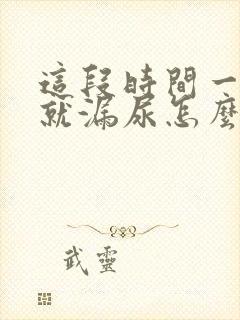 這段時間一
就漏尿怎麼
武靈